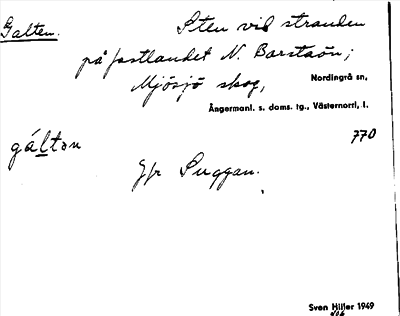 Galten. Sten vid stranden
på fastlandet N. Barstaön;
Mjösjö skog, Nordingrå sn,
Ångermanl. s. doms. tg., Västernorrl. l.
gáltən 770
Jfr Suggan.
Sven Hiller 1949